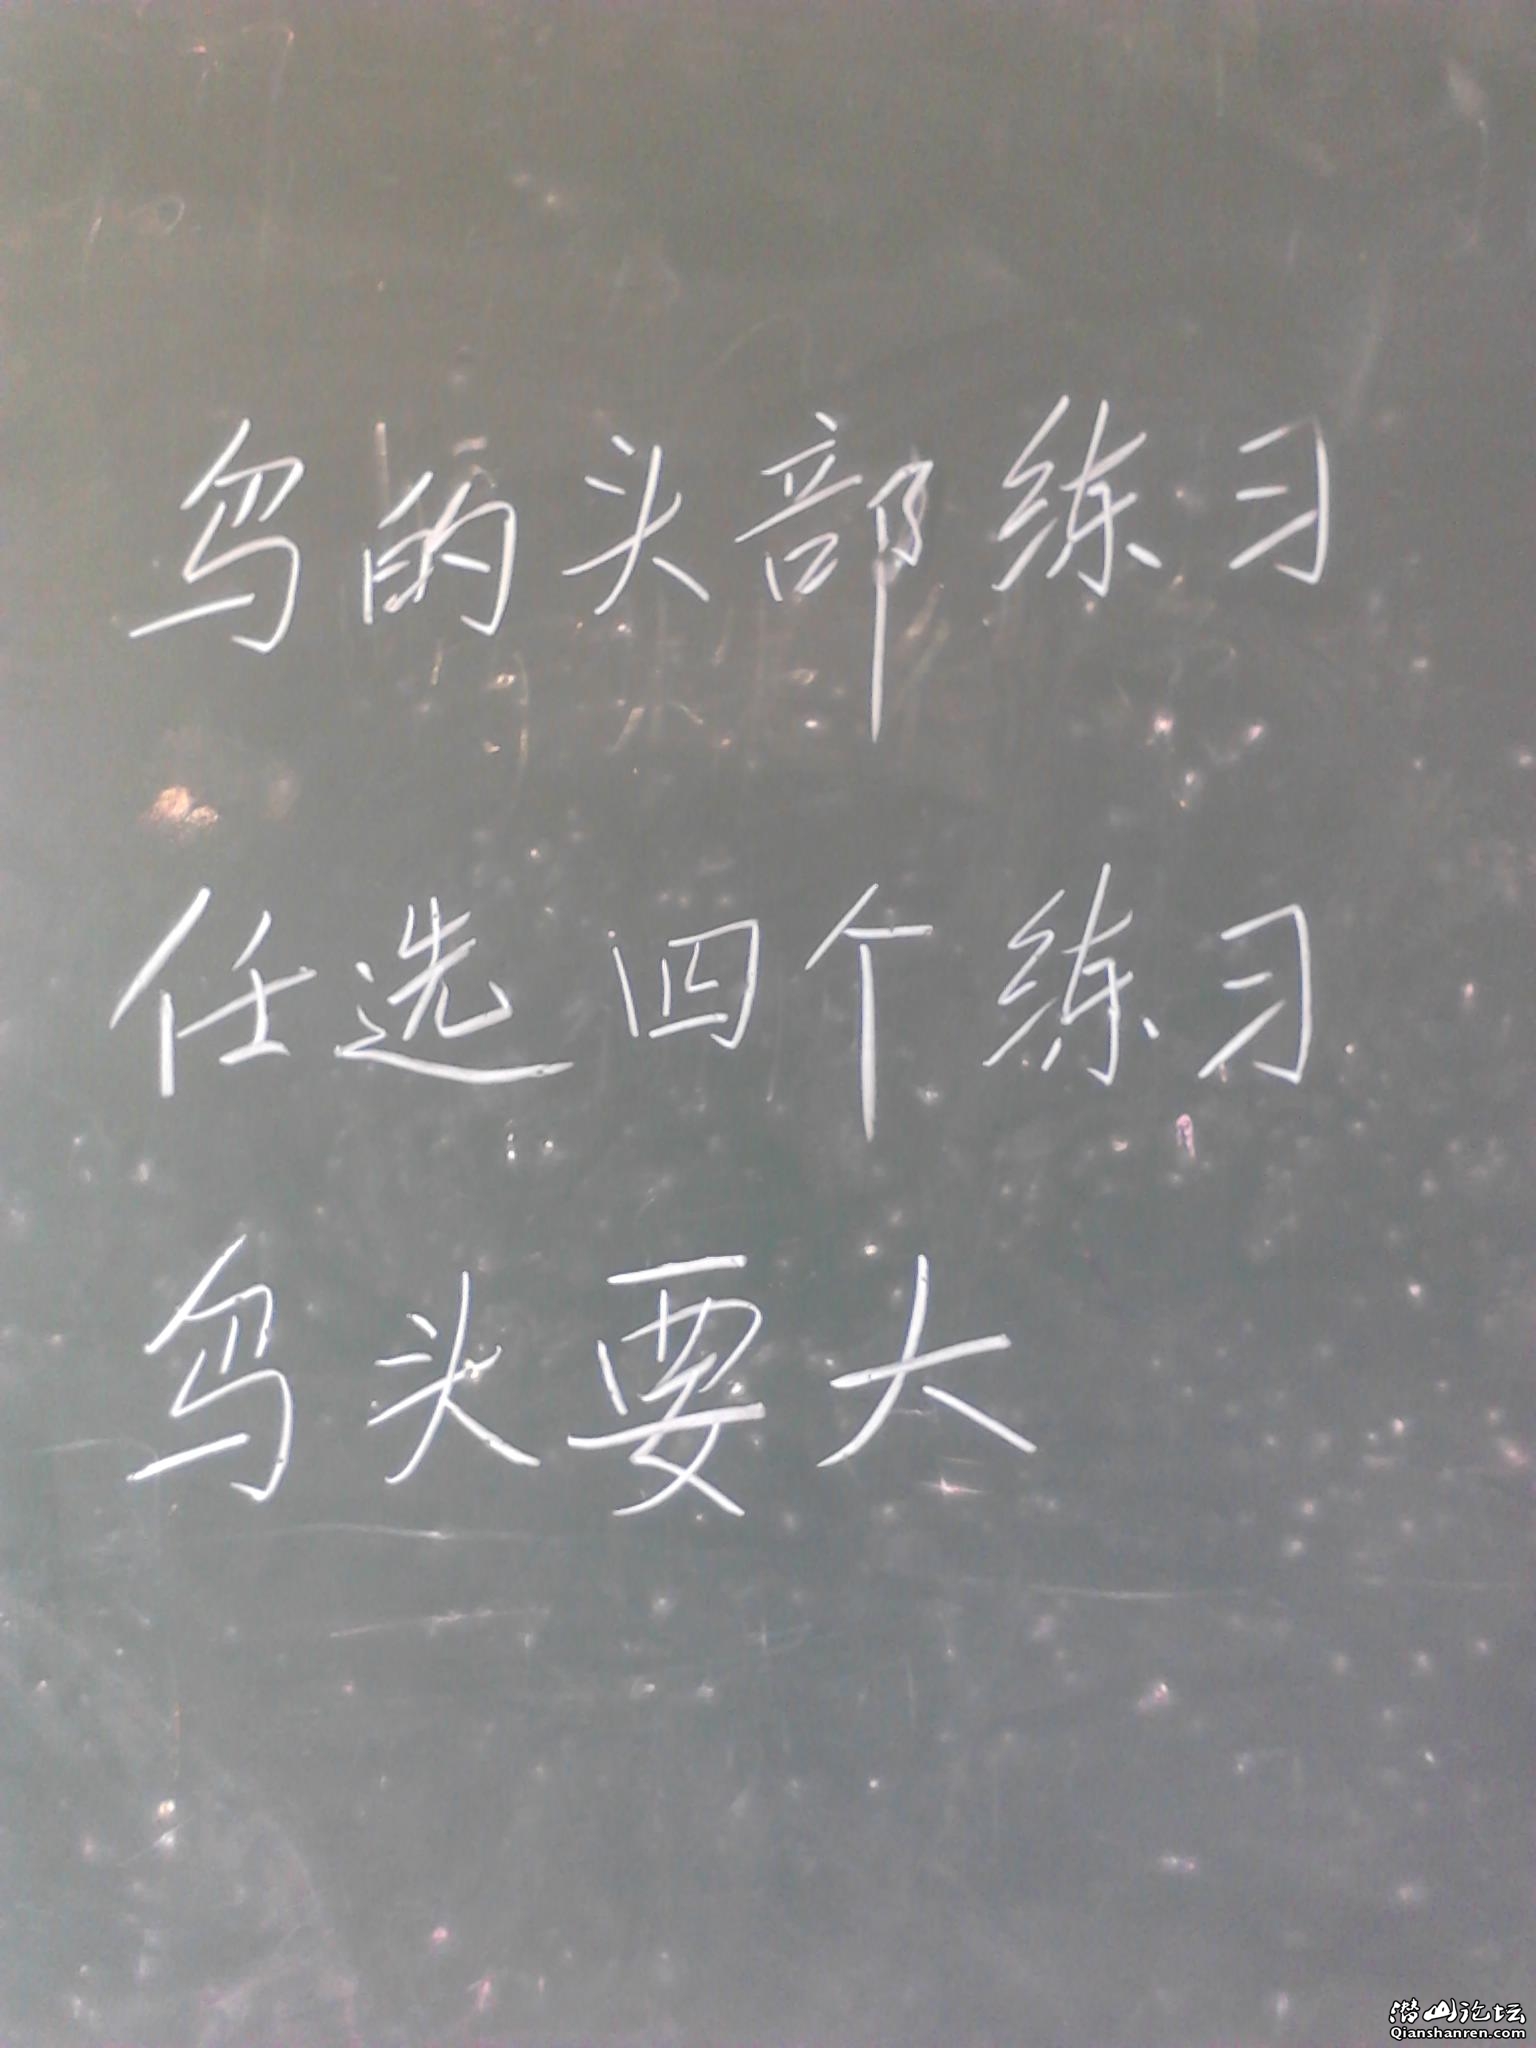 鸟的头部练习
任选四个练习
鸟头要大
潜山论坛
Qianshanren.com